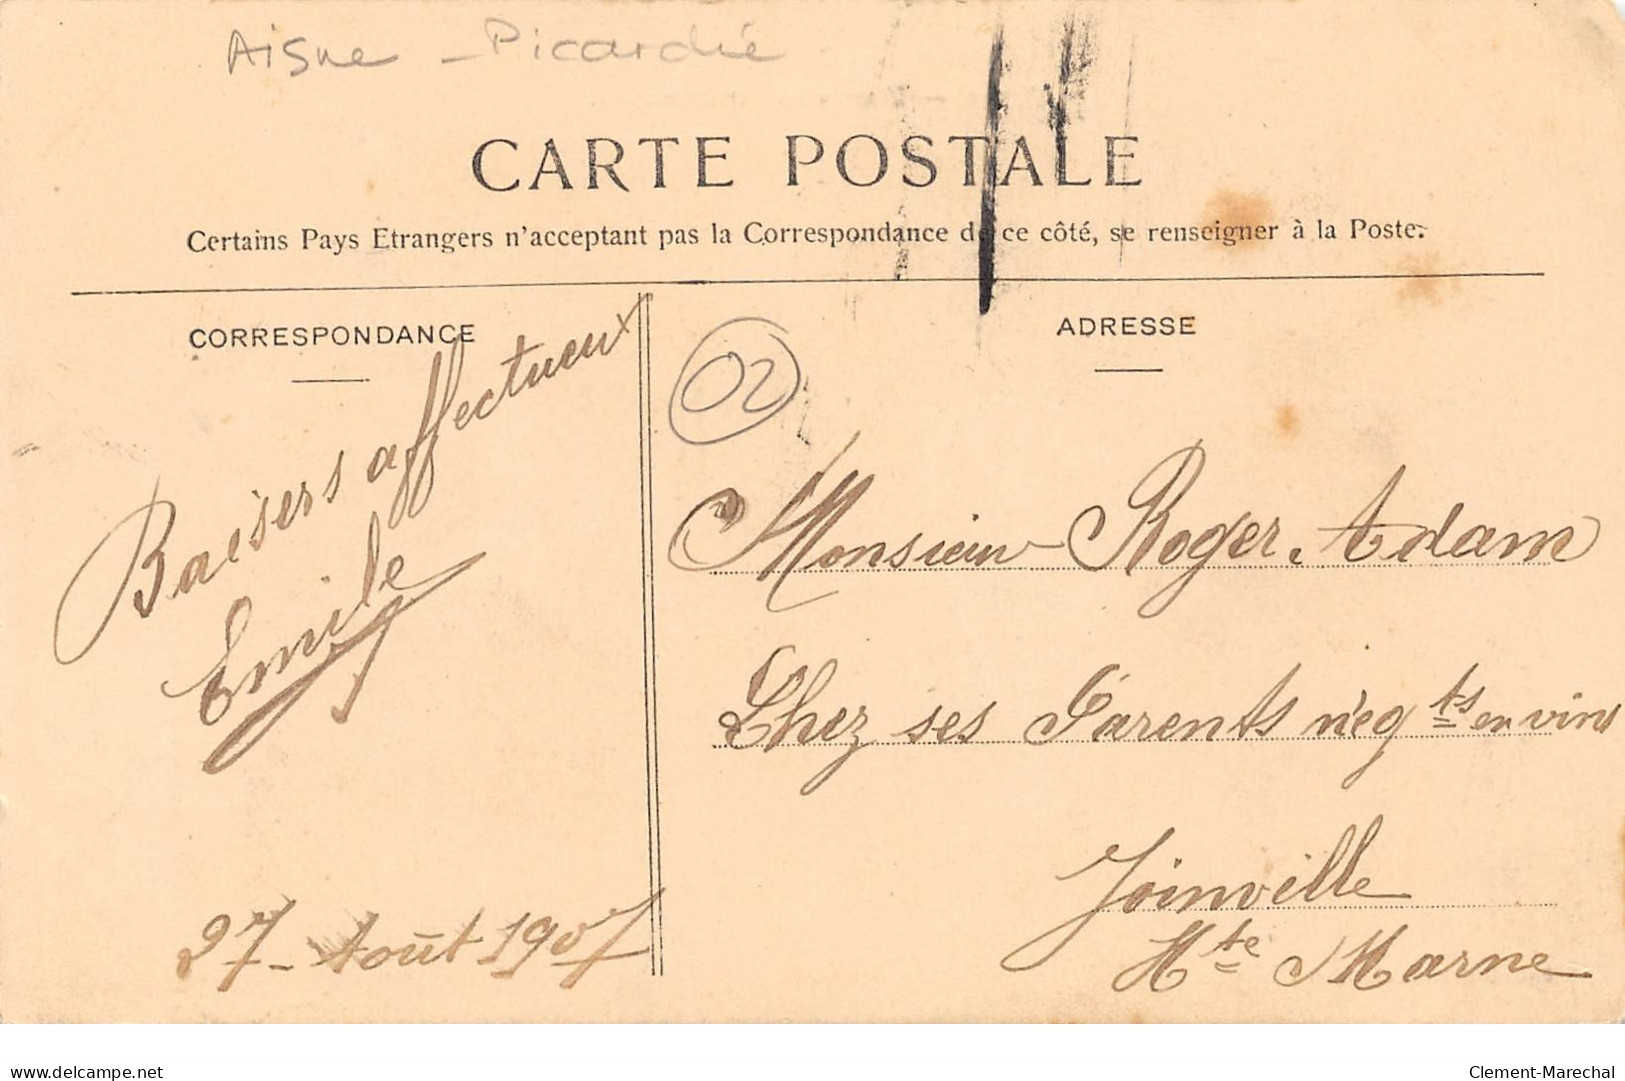 Aisne - Picardie
CARTE POSTALE
Certains Pays Etrangers n'acceptant pas la Correspondance de ce côté, se renseigner à la Poste.
CORRESPONDANCE
Baisers affectueux
Emile
27 - Août 1907
02
ADRESSE
Monsieur Roger Adam
Chez ses Parents négts en vins
Joinville
Hte Marne
delcampe.net
Clement-Marechal